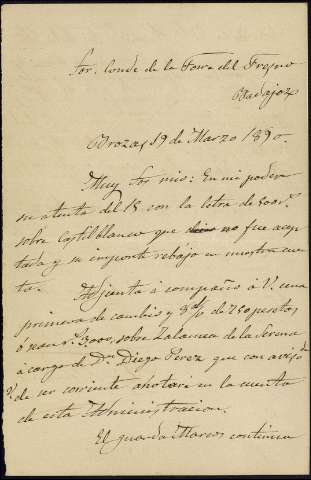 Sor. Conde de la Torre del Fresno
Badajoz
Brozas 19 de Marzo 1890.
Muy Sor mio: En mi poder
su atenta del 15 con la letra de 500 rs.
sobre Castilblanco que no fue acep
tada y su importe rebajo en nuestra cuen
ta. Adjunta á compaño á V. una
primera de cambio y 3 d/f de 750 pesetas
ó sean rs. 3,000, sobre Zalamea de la Serena
á cargo de Dn. Diego Perez que con aviso
de ser corriente anotaré en la cuenta
de esta Administracion.
El guarda Marcos continua